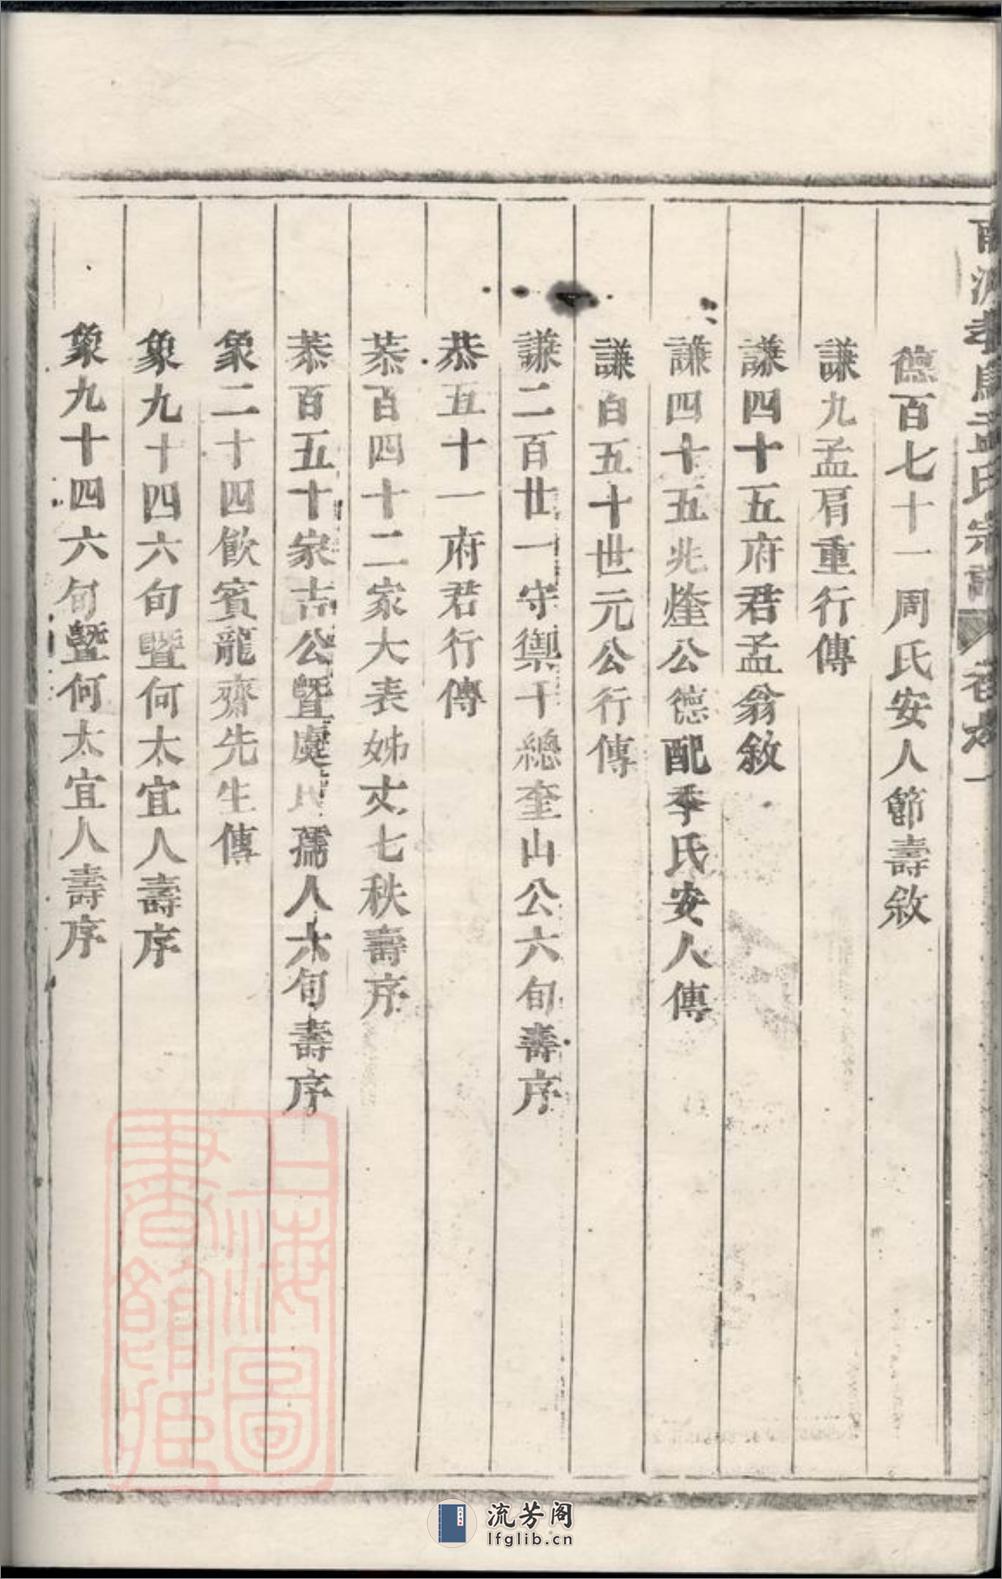 孟氏宗譜 卷之一
德百七十一周氏安人節壽敘
謙九孟肩重行傳
謙四十五府君孟翁敘
謙四十五兆煃公德配季氏安人傳
謙百五十世元公行傳
謙二百廿一守禦千總奎山公六旬壽序
恭五十一府君行傳
恭百四十二家大表姊丈七秩壽序
恭百五十家吉公暨虞氏孺人六旬壽序
象二十四飲賓龍齋先生傳
象九十四六旬暨何太宜人壽序
象九十四六旬暨何太宜人壽序
上海圖
書館藏
流芳阁
lfglib.cn